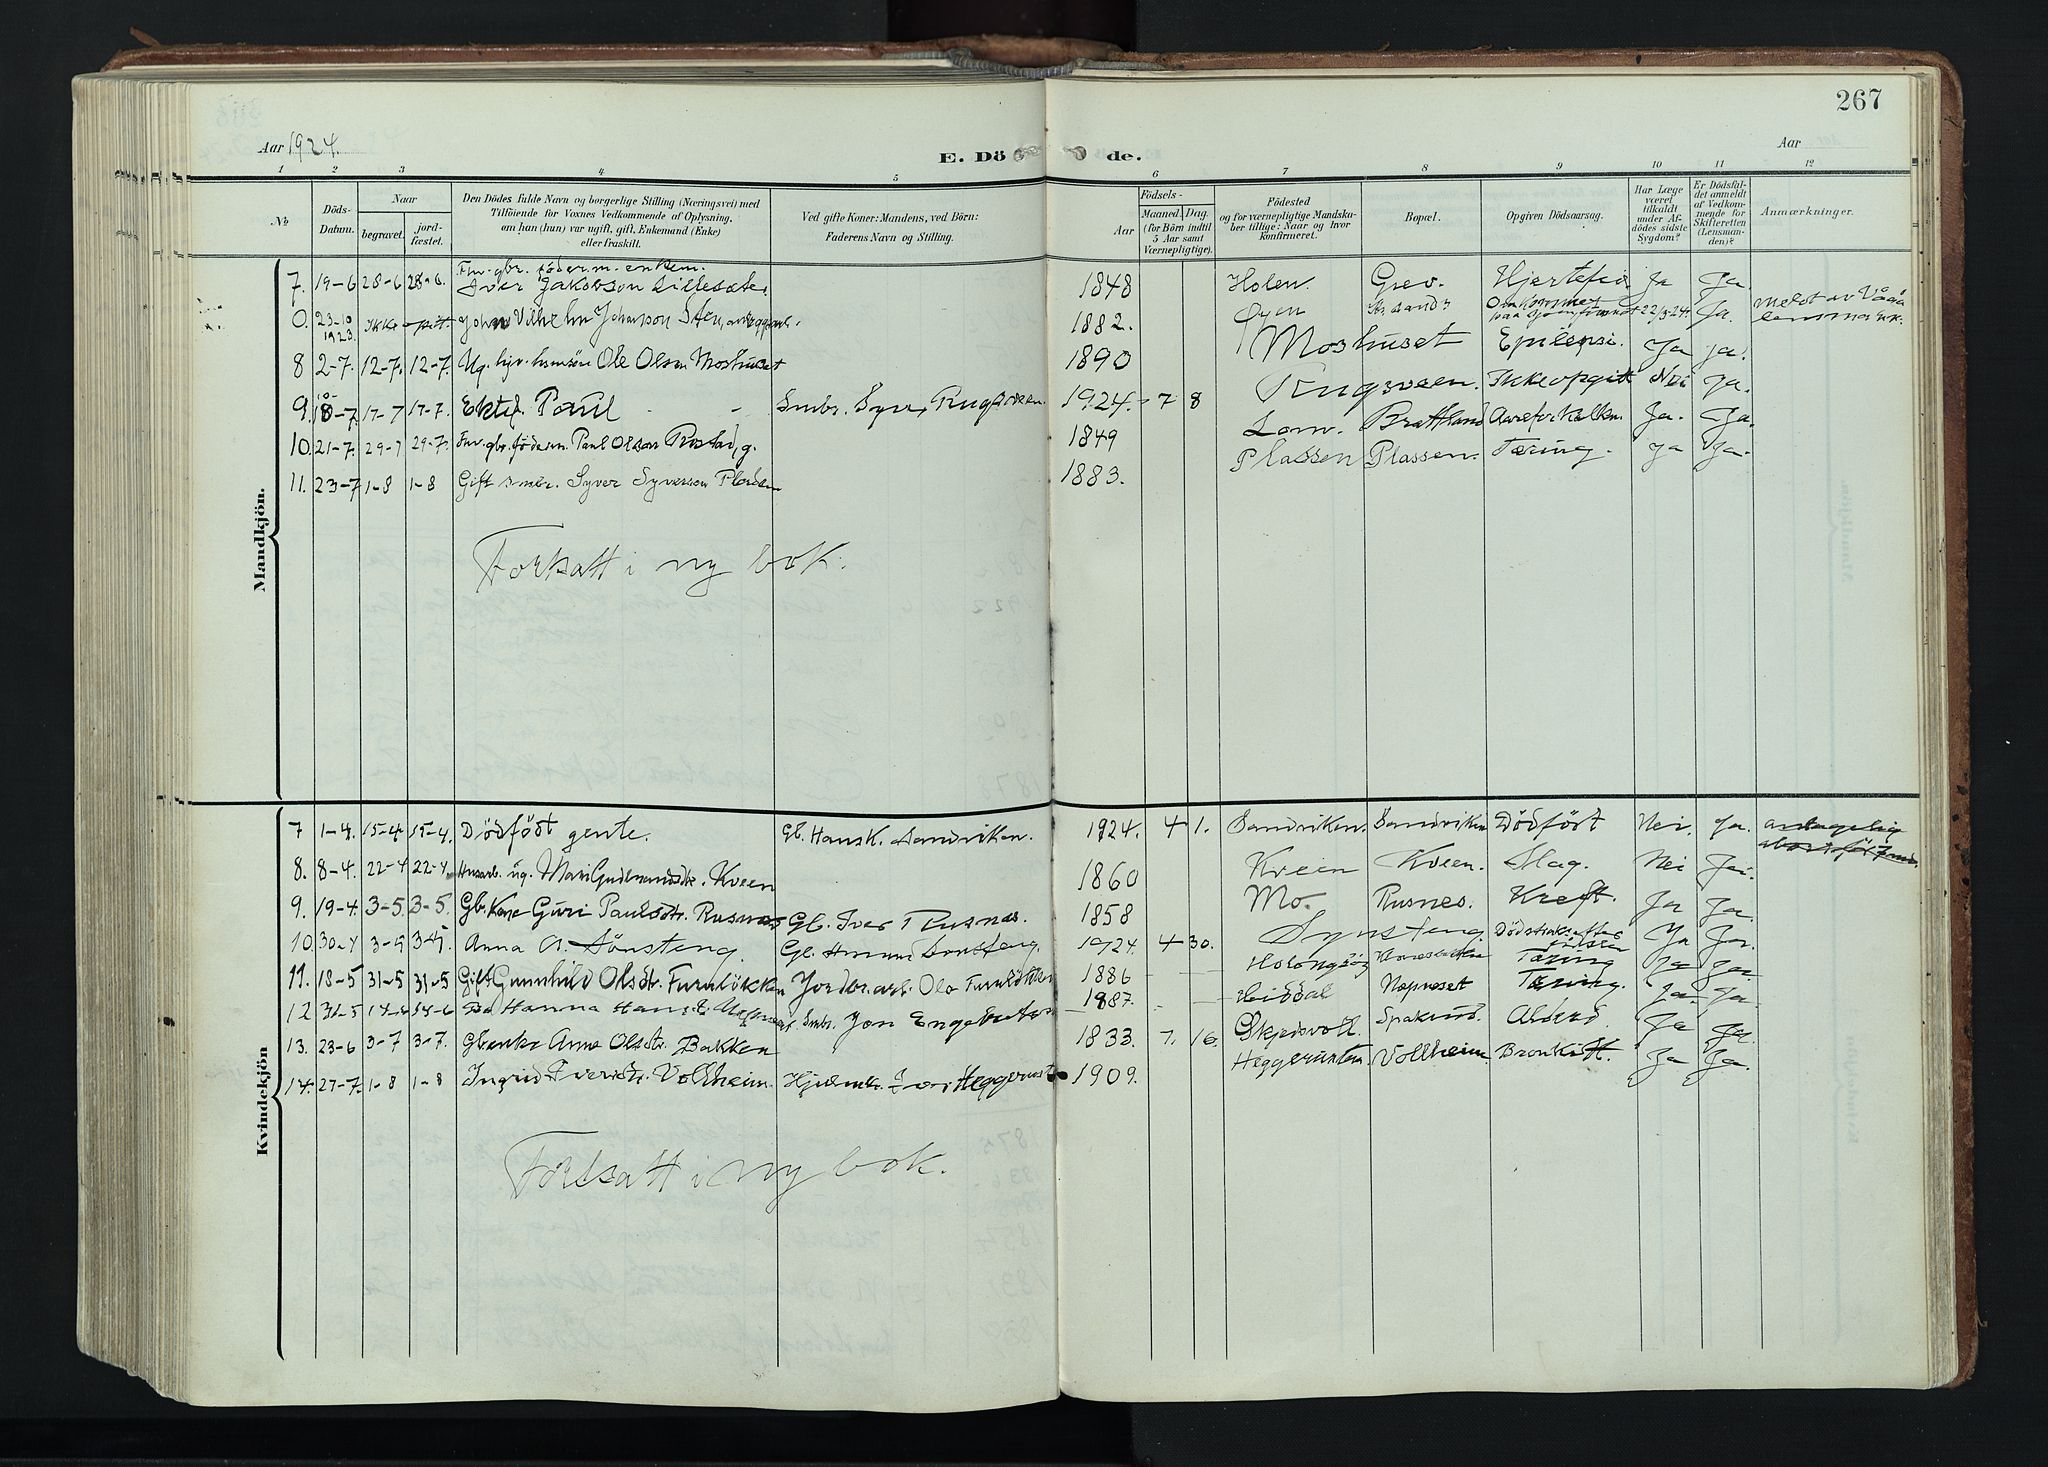 267
Aar 1924.
E. Dö de.
Aar
1 2 3 4 5 6 7 8 9 10 11 12
No
Döds-Datum.
Naar
begravet.
jord-fæstet.
Den Dödes fulde Navn og borgerlige Stilling (Næringsvei) med
Tilföiende for Voxnes Vedkommende af Oplysning,
om han (hun) var ugift, gift, Enkemand (Enke)
eller fraskilt.
Ved gifte Koner: Mandens, ved Börn:
Faderens Navn og Stilling.
Födsels-
Aar
Maaned. Dag.
(for Börn indtil
5 Aar samt
Værnepligtige).
Födested
og for værnepligtige Mandska-
ber tillige: Naar og hvor
Konfirmeret.
Bopæl.
Opgiven Dödsaarsag.
Har Læge
været
tilkaldt
under Af-
dödes sidste
Sygdom?
Er Dödsfal-
det anmeldt
af Vedkom-
mende for
Skifteretten
(Lensman-
den)?
Anmærkninger.
Mandkjön.
7. 19-6 28-6 28-6. Fhv. gbr. föderm. enkem. Iver Jakobson Lillesæter. 1848 Holen. Grev. Hjertefeil Ja Ja.
0. 23-10 1923. Ikke Johan Vilhelm Johanson 1882. Öyen Omkommet 22/3-24. Ja. Meldt av Vaage
8 2-7. 12-7. 12-7. Ug. Ole Olsen Moshuset 1890 Moshuset Epilepsi. Ja ja.
9. 17-7 17-7. Paul Smbr. Syver Rugsveen. 1924. 7 8 Rugsveen. Ikke opgitt Nei Ja.
10. 21-7. 29-7 29-7. Fhv. gbr. föderm. Paul Olsen Rustad, g. 1849 Lom. Brattland Aareforkalkn. Ja. Ja.
11. 23-7 1-8 1-8 Gift smbr. Syver Syverson Plassen 1883. Plassen Plassen. Tæring. Ja Ja.
Forsatt i ny bok.
Kvindekjön
7 1-4. 15-4. 15-4. Dödfödt gente. Gb. Hans K. Sandviken. 1924. 4 1. Sandviken. Sandviken Dödföst Nei. ja.
8. 8-4. 22-4 22-4 Husarb. ug. Mari Gudbrandsdtr. Kveen 1860 Kveen Kveen. Slag. Nei Ja.
9. 19-4. 3-5. 3-5. Gb. Kone Guri Paulsdtr. Rusnes Gb. Iver T Rusnes. 1858 Mo. Rusnes. Kreft. Ja Ja.
10. 30-4 3-5 3-5. Anna A. Sönsteng. Gb. Amund Sönsteng. 1924. 4 30. Synsteng Död straks efter födsel Ja Ja.
11. 18-5 31-5 31-5 Gift Gunnhild Olsdtr. Furulökken Jordbr.arb. Ola Furulökken 1886 Tæring Ja Ja
12 31-5 14-6 14-6 Do Hanna Hansdtr. Smbr. Jon Engebretsen 1887. Heidal Næprset Tæring. Ja Ja.
13. 23-6 3-7 3-7. Gb.enke Anne Olsdtr. Bakken 1833. 7. 16. Skjedsvoll. Alderd. Ja Ja.
14. 27-7. 1-8 1-8 Ingrid Iversdtr. Vollheim. Iver Heggerust 1909. Heggerusten Vollheim Bronkitt. Ja Ja.
Forsatt i ny bok.